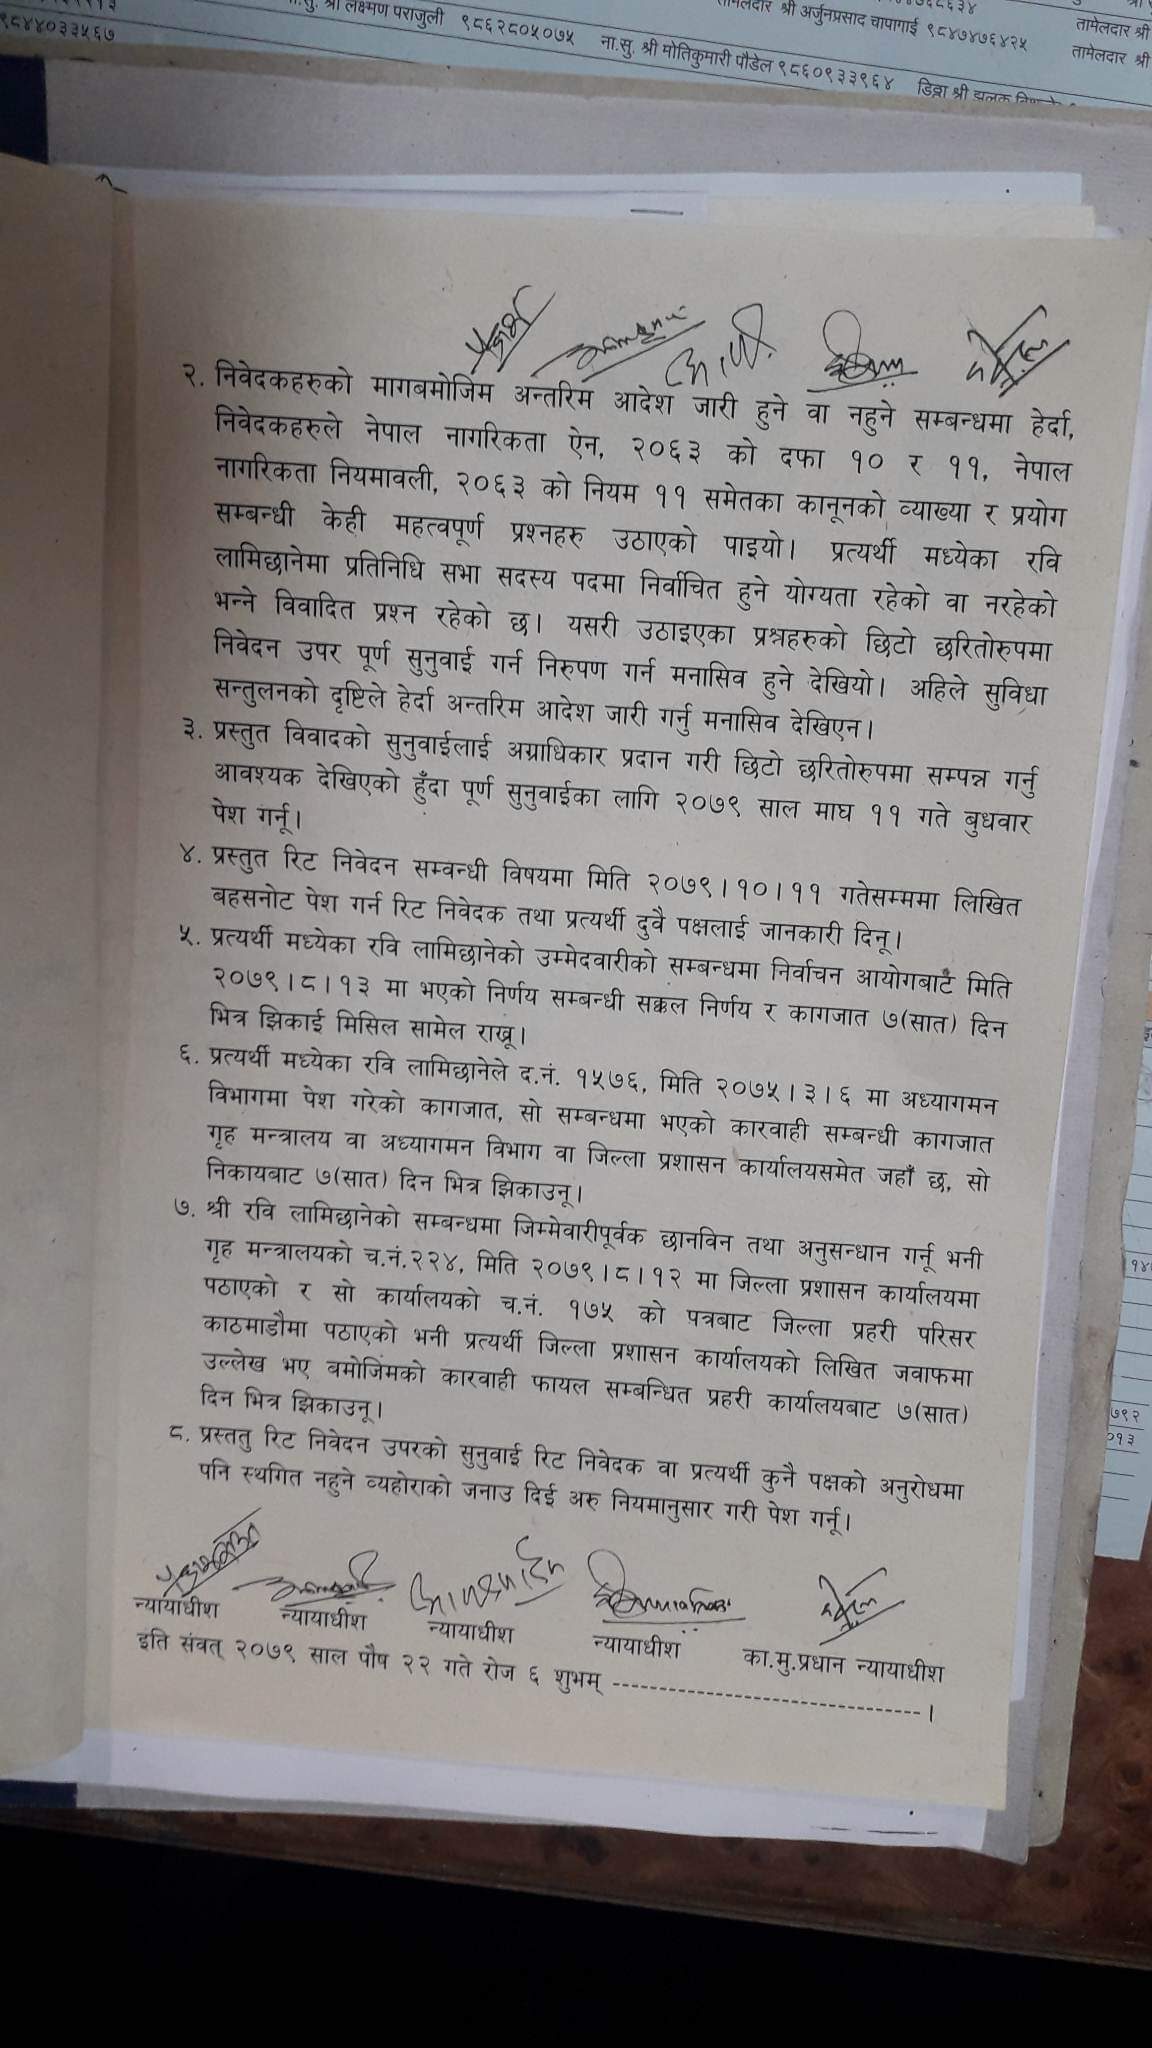 ९८४४०३३५६७
ना.सु. श्री लक्ष्मण पराजुली ९८६२८०५०७५
तामेलदार श्री अर्जुनप्रसाद चापागाई ९८४७४७६४२५
तामेलदार श्री
ना.सु. श्री मोतिकुमारी पौडेल ९८६०९३३९६४
तामेलदार श्री
डिट्ठा श्री झलक
२. निवेदकहरुको मागबमोजिम अन्तरिम आदेश जारी हुने वा नहुने सम्बन्धमा हेर्दा,
निवेदकहरुले नेपाल नागरिकता ऐन, २०६३ को दफा १० र ११, नेपाल
नागरिकता नियमावली, २०६३ को नियम ११ समेतका कानूनको व्याख्या र प्रयोग
सम्बन्धी केही महत्वपूर्ण प्रश्नहरु उठाएको पाइयो। प्रत्यर्थी मध्येका रवि
लामिछानेमा प्रतिनिधि सभा सदस्य पदमा निर्वाचित हुने योग्यता रहेको वा नरहेको
भन्ने विवादित प्रश्न रहेको छ। यसरी उठाइएका प्रश्नहरुको छिटो छरितोरुपमा
निवेदन उपर पूर्ण सुनुवाई गर्न निरुपण गर्न मनासिव हुने देखियो। अहिले सुविधा
सन्तुलनको दृष्टिले हेर्दा अन्तरिम आदेश जारी गर्नु मनासिव देखिएन।
३. प्रस्तुत विवादको सुनुवाईलाई अग्राधिकार प्रदान गरी छिटो छरितोरुपमा सम्पन्न गर्नु
आवश्यक देखिएको हुँदा पूर्ण सुनुवाईका लागि २०७९ साल माघ ११ गते बुधवार
पेश गर्नू।
४. प्रस्तुत रिट निवेदन सम्वन्धी विषयमा मिति २०७९।१०।११ गतेसम्ममा लिखित
बहसनोट पेश गर्न रिट निवेदक तथा प्रत्यर्थी दुवै पक्षलाई जानकारी दिनू।
५. प्रत्यर्थी मध्येका रवि लामिछानेको उम्मेदवारीको सम्बन्धमा निर्वाचन आयोगबाट मिति
२०७९।८।१३ मा भएको निर्णय सम्बन्धी सक्कल निर्णय र कागजात ७(सात) दिन
भित्र झिकाई मिसिल सामेल राखू।
६. प्रत्यर्थी मध्येका रवि लामिछानेले द.नं. १५७६, मिति २०७५।३।६ मा अध्यागमन
विभागमा पेश गरेको कागजात, सो सम्बन्धमा भएको कारवाही सम्बन्धी कागजात
गृह मन्त्रालय वा अध्यागमन विभाग वा जिल्ला प्रशासन कार्यालयसमेत जहाँ छ, सो
निकायबाट ७(सात) दिन भित्र झिकाउनू।
७. श्री रवि लामिछानेको सम्बन्धमा जिम्मेवारीपूर्वक छानविन तथा अनुसन्धान गर्नू भनी
गृह मन्त्रालयको च.नं.२२४, मिति २०७९।८।१२ मा जिल्ला प्रशासन कार्यालयमा
पठाएको र सो कार्यालयको च.नं. १७५ को पत्रबाट जिल्ला प्रहरी परिसर
काठमाडौमा पठाएको भनी प्रत्यर्थी जिल्ला प्रशासन कार्यालयको लिखित जवाफमा
उल्लेख भए बमोजिमको कारवाही फायल सम्बन्धित प्रहरी कार्यालयबाट ७(सात)
दिन भित्र झिकाउनू।
८. प्रस्ततु रिट निवेदन उपरको सुनुवाई रिट निवेदक वा प्रत्यर्थी कुनै पक्षको अनुरोधमा
पनि स्थगित नहुने व्यहोराको जनाउ दिई अरु नियमानुसार गरी पेश गर्नू।
न्यायाधीश न्यायाधीश न्यायाधीश न्यायाधीश का.मु.प्रधान न्यायाधीश
इति संवत् २०७९ साल पौष २२ गते रोज ६ शुभम् -------------------------------।